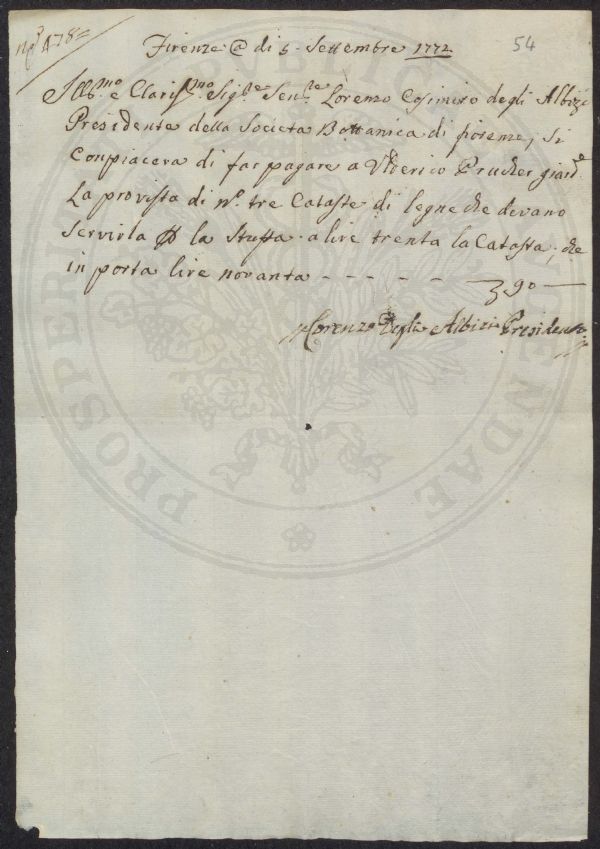 no 478
54
Firenze @ di 5 Settembre 1772
Illmo e Clarissmo Sigre Senre Lorenzo Cosimiro degli Albizi
Presidente della Societa Bottanica di fiorenze, si
Conpiacera di far pagare a Vlderico Prucher giard.
La provista di no. tre Cataste di legne che devano
Servirla p la Stuffa a lire trenta la Catasta, che
in porta lire novanta - - - - - 90 -
Lorenzo Degli Albizi Presidente
PUBLICAE
PROSPERITATI
AUGENDAE